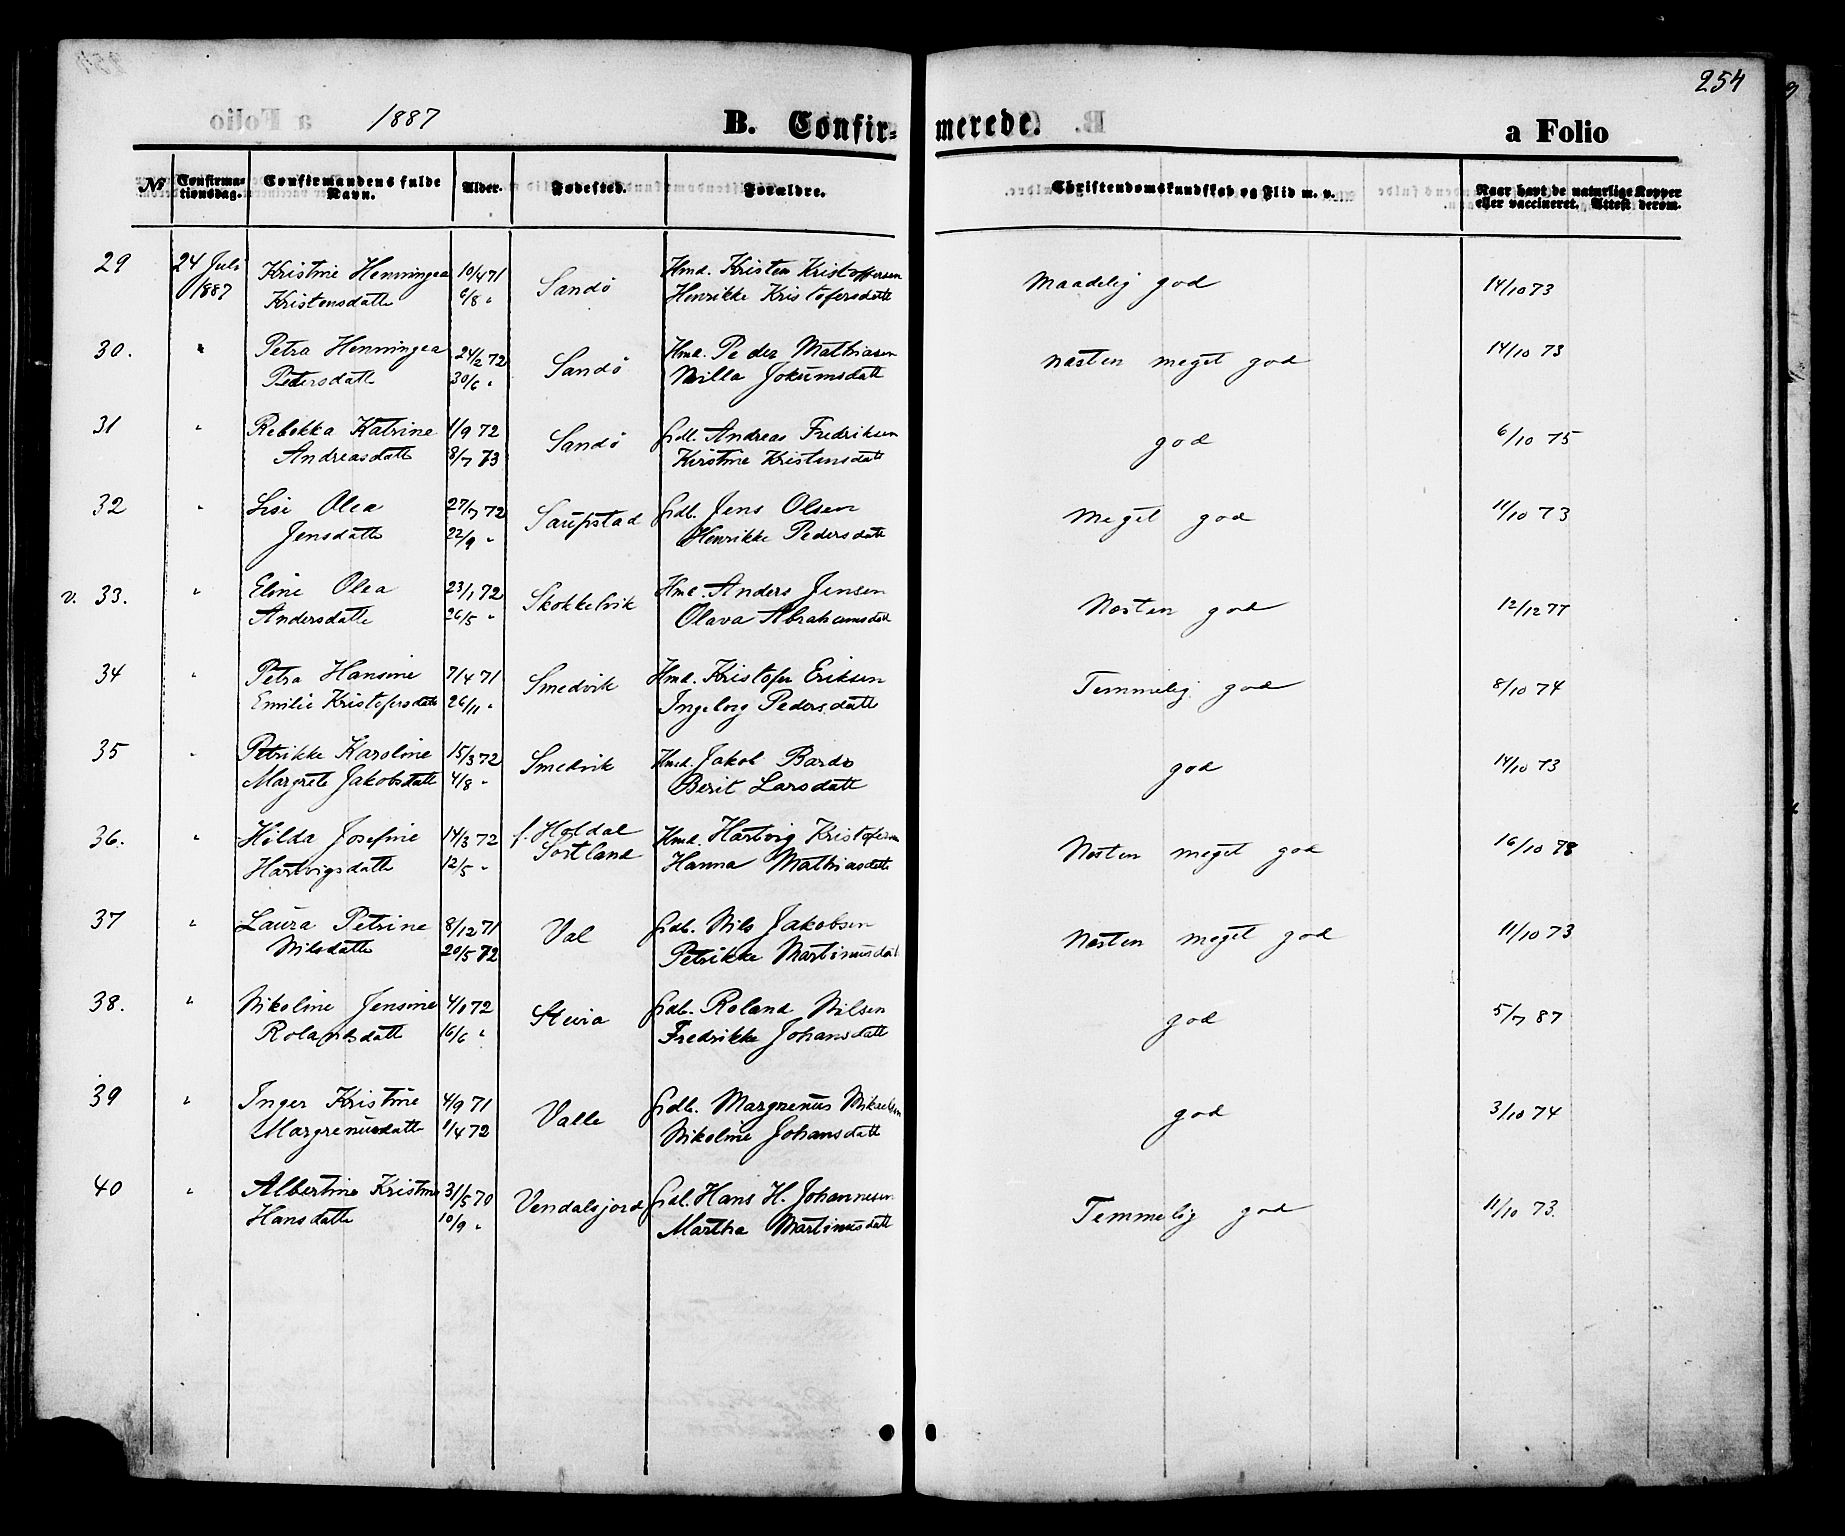 254
1887
B. Confir-
merede.
a Folio
No
Confirma-
tionsdag.
Confirmandens fulde
Navn.
Alder.
Fødested.
Forældre.
Christendomskundskab og Flid m. v.
Naar havt de naturlige Kopper
eller vaccineret. Attest derom.
29 24 Juli Kristine Henningea 10/4 71 Sandö Hmd. Kristen Kristoffersen Maadelig god 14/10 73
1887 Kristensdatt 6/8 " Henrikke Kristofersdatt
30. " Petra Henningea 24/2 72 Sandö Hmd. Peder Mathiasen næsten meget god 14/10 73
Pedersdatt 30/6 " Nilla Jokumsdatt
31 " Rebekka Katrine 1/9 72 Sandö Gdb. Andreas Fredriksen god 6/10 75
Andreasdatt 8/7 73 Kirstine Kristensdatt
32 " Lise Olea 27/7 72 Saupstad Gdb. Jens Olsen Meget god 11/10 73
Jensdatt 22/9 " Henrikke Pedersdatt
v. 33. " Eline Olea 23/1 72 Skokkelvik Hmd. Anders Jensen Næsten god 12/12 77
Andersdatt 26/5 " Olava Abrahamsdatt
34 " Petra Hansine 7/4 71 Smedvik Hmd. Kristofer Eriksen Temmelig god 8/10 74
Emilie Kristofersdatt 26/11 " Ingeborg Pedersdatt
35 " Petrikke Karoline 15/3 72 Smedvik Hmd. Jakob Bardo god 14/10 73
Margrete Jakobsdatt 4/8 " Berit Larsdatt
36. " Hilda Josefine 14/3 72 f. Holdal Hmd. Hartvig Kristofersen Næsten meget god 16/10 78
Hartvigsdatt 12/5 " Sortland Hanna Mathiasdatt
37 " Laura Petrine 8/12 71 Val Gdb. Nils Jakobsen Næsten meget god 11/10 73
Nilsdatt 20/5 72 Petrikke Martinusdatt
38. " Nikoline Jensine 4/1 72 Steiro Gdb. Roland Nilsen god 5/7 87
Rolandsdatt 16/6 " Fredrikke Johansdatt
39 " Inger Kristine 4/9 71 Valle Gdb. Margrenus Mikaelsen god 3/10 74
Margrenusdatt 1/4 72 Nikoline Johansdatt
40 " Albertine Kristine 31/5 70 Vendalsjord Gdb. Hans H. Johannesen Temmelig god 11/10 73.
Hansdatt 10/9 " Martha Martinusdatt